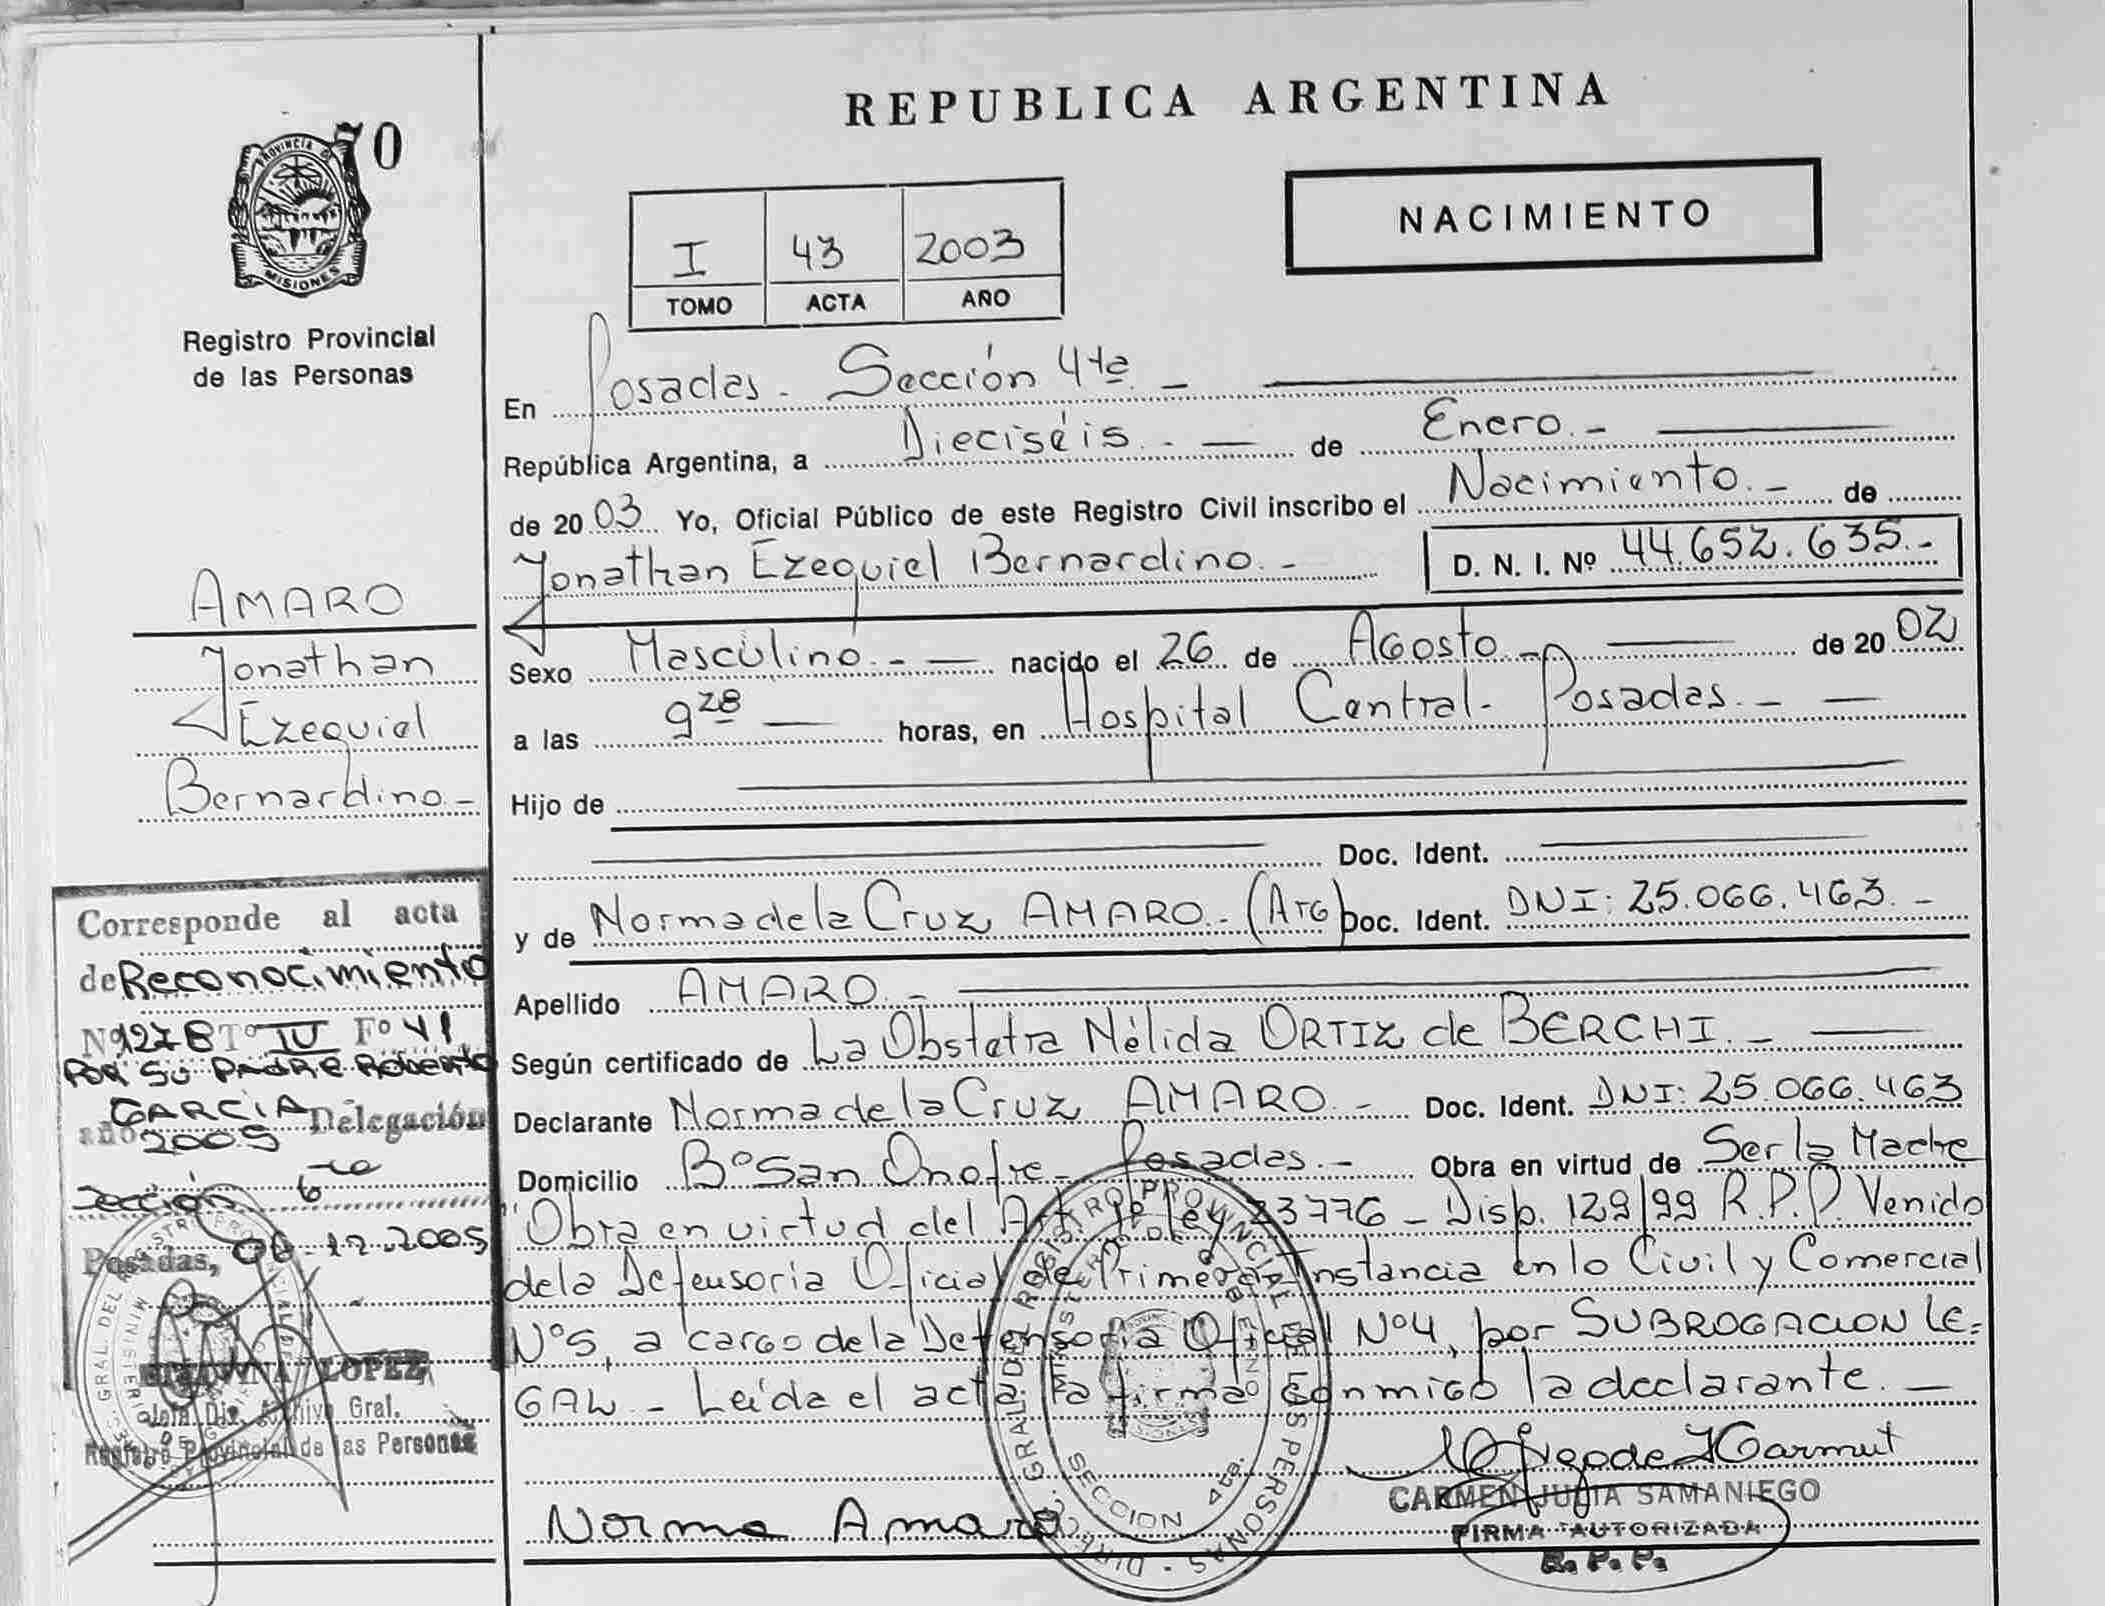 REPUBLICA ARGENTINA
70
PROVINCIA DE
MISIONES
Registro Provincial
de las Personas
NACIMIENTO
I 43 2003
TOMO ACTA AÑO
En Posadas. Sección 4ta. -
República Argentina, a Dieciséis. - de Enero. -
de 2003 Yo, Oficial Público de este Registro Civil inscribo el Nacimiento. - de
Jonathan Ezequiel Bernardino. - D. N. I. Nº 44.652.635. -
Sexo Masculino. - nacido el 26 de Agosto - de 2002
a las 9 28 horas, en Hospital Central - Posadas. -
Hijo de
Doc. Ident.
y de Norma de la Cruz AMARO. - (Arg) Doc. Ident. DNI: 25.066.463. -
Apellido AMARO. -
Según certificado de La Obstetra Nélida ORTIZ de BERCHI. -
Declarante Norma de la Cruz AMARO. - Doc. Ident. DNI: 25.066.463
Domicilio Bº San Onofre - Posadas. - Obra en virtud de Ser la Madre
"Obra en virtud del Ley 23776 - Disp. 129/99 R.P.P. Venido
de la Defensoria Oficial de Primera Instancia en lo Civil y Comercial
Nº5, a cargo de la Defensoria Oficial Nº4, por SUBROGACION LE=
GAL - Leída el acta la firma conmigo la declarante. -
Norma Amaro
CARMEN JULIA SAMANIEGO
FIRMA AUTORIZADA
R. P. P.
SECCION 4ta.
AMARO
Jonathan
Ezequiel
Bernardino. -
Corresponde al acta
de Reconocimiento
Nº 1278 Tº IV Fº 41
POR SU PADRE ROBERTO
GARCIA Delegación
año 2005
Sección 6ta
Posadas, 06-12-2005
LOPEZ
Jefa Dir. Archivo Gral.
Registro Provincial de las Personas